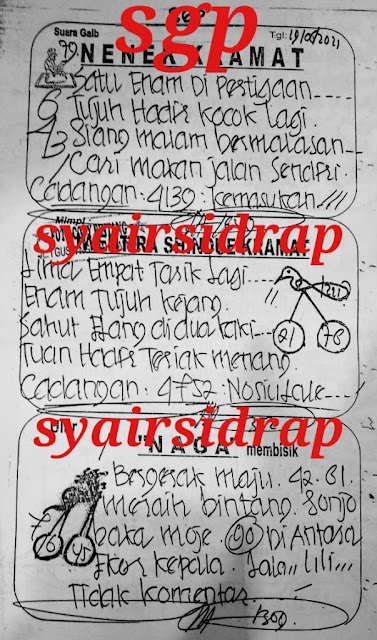 sgp
Suara Gaib Tgl: 19/08 2021
NENEK KRAMAT
79 Satu Enam Di Pertigaan
6 Tujuh Hadir Kocok Lagi.
2 3 Siang malam bermalasan
1 Cari makan jalan Sendiri.
Cadangan: 4139. kemasukan !!!
Mimpi
syairsidrap
KRAMAT
Lima Empat Tarik lagi
Enam Tujuh kejang.
Sahut Elang di dua kaki
Tuan Hadir Teriak menang.
91 78
Cadangan: 4752:
syairsidrap
"NAGA" membisik
Bergerak maju. 42. 81.
meraih bintang. Sonjo
kata moje. 90 Di Antara
Ekor kepala. Lala,,, lili,,,
Tidak komentar.
1300